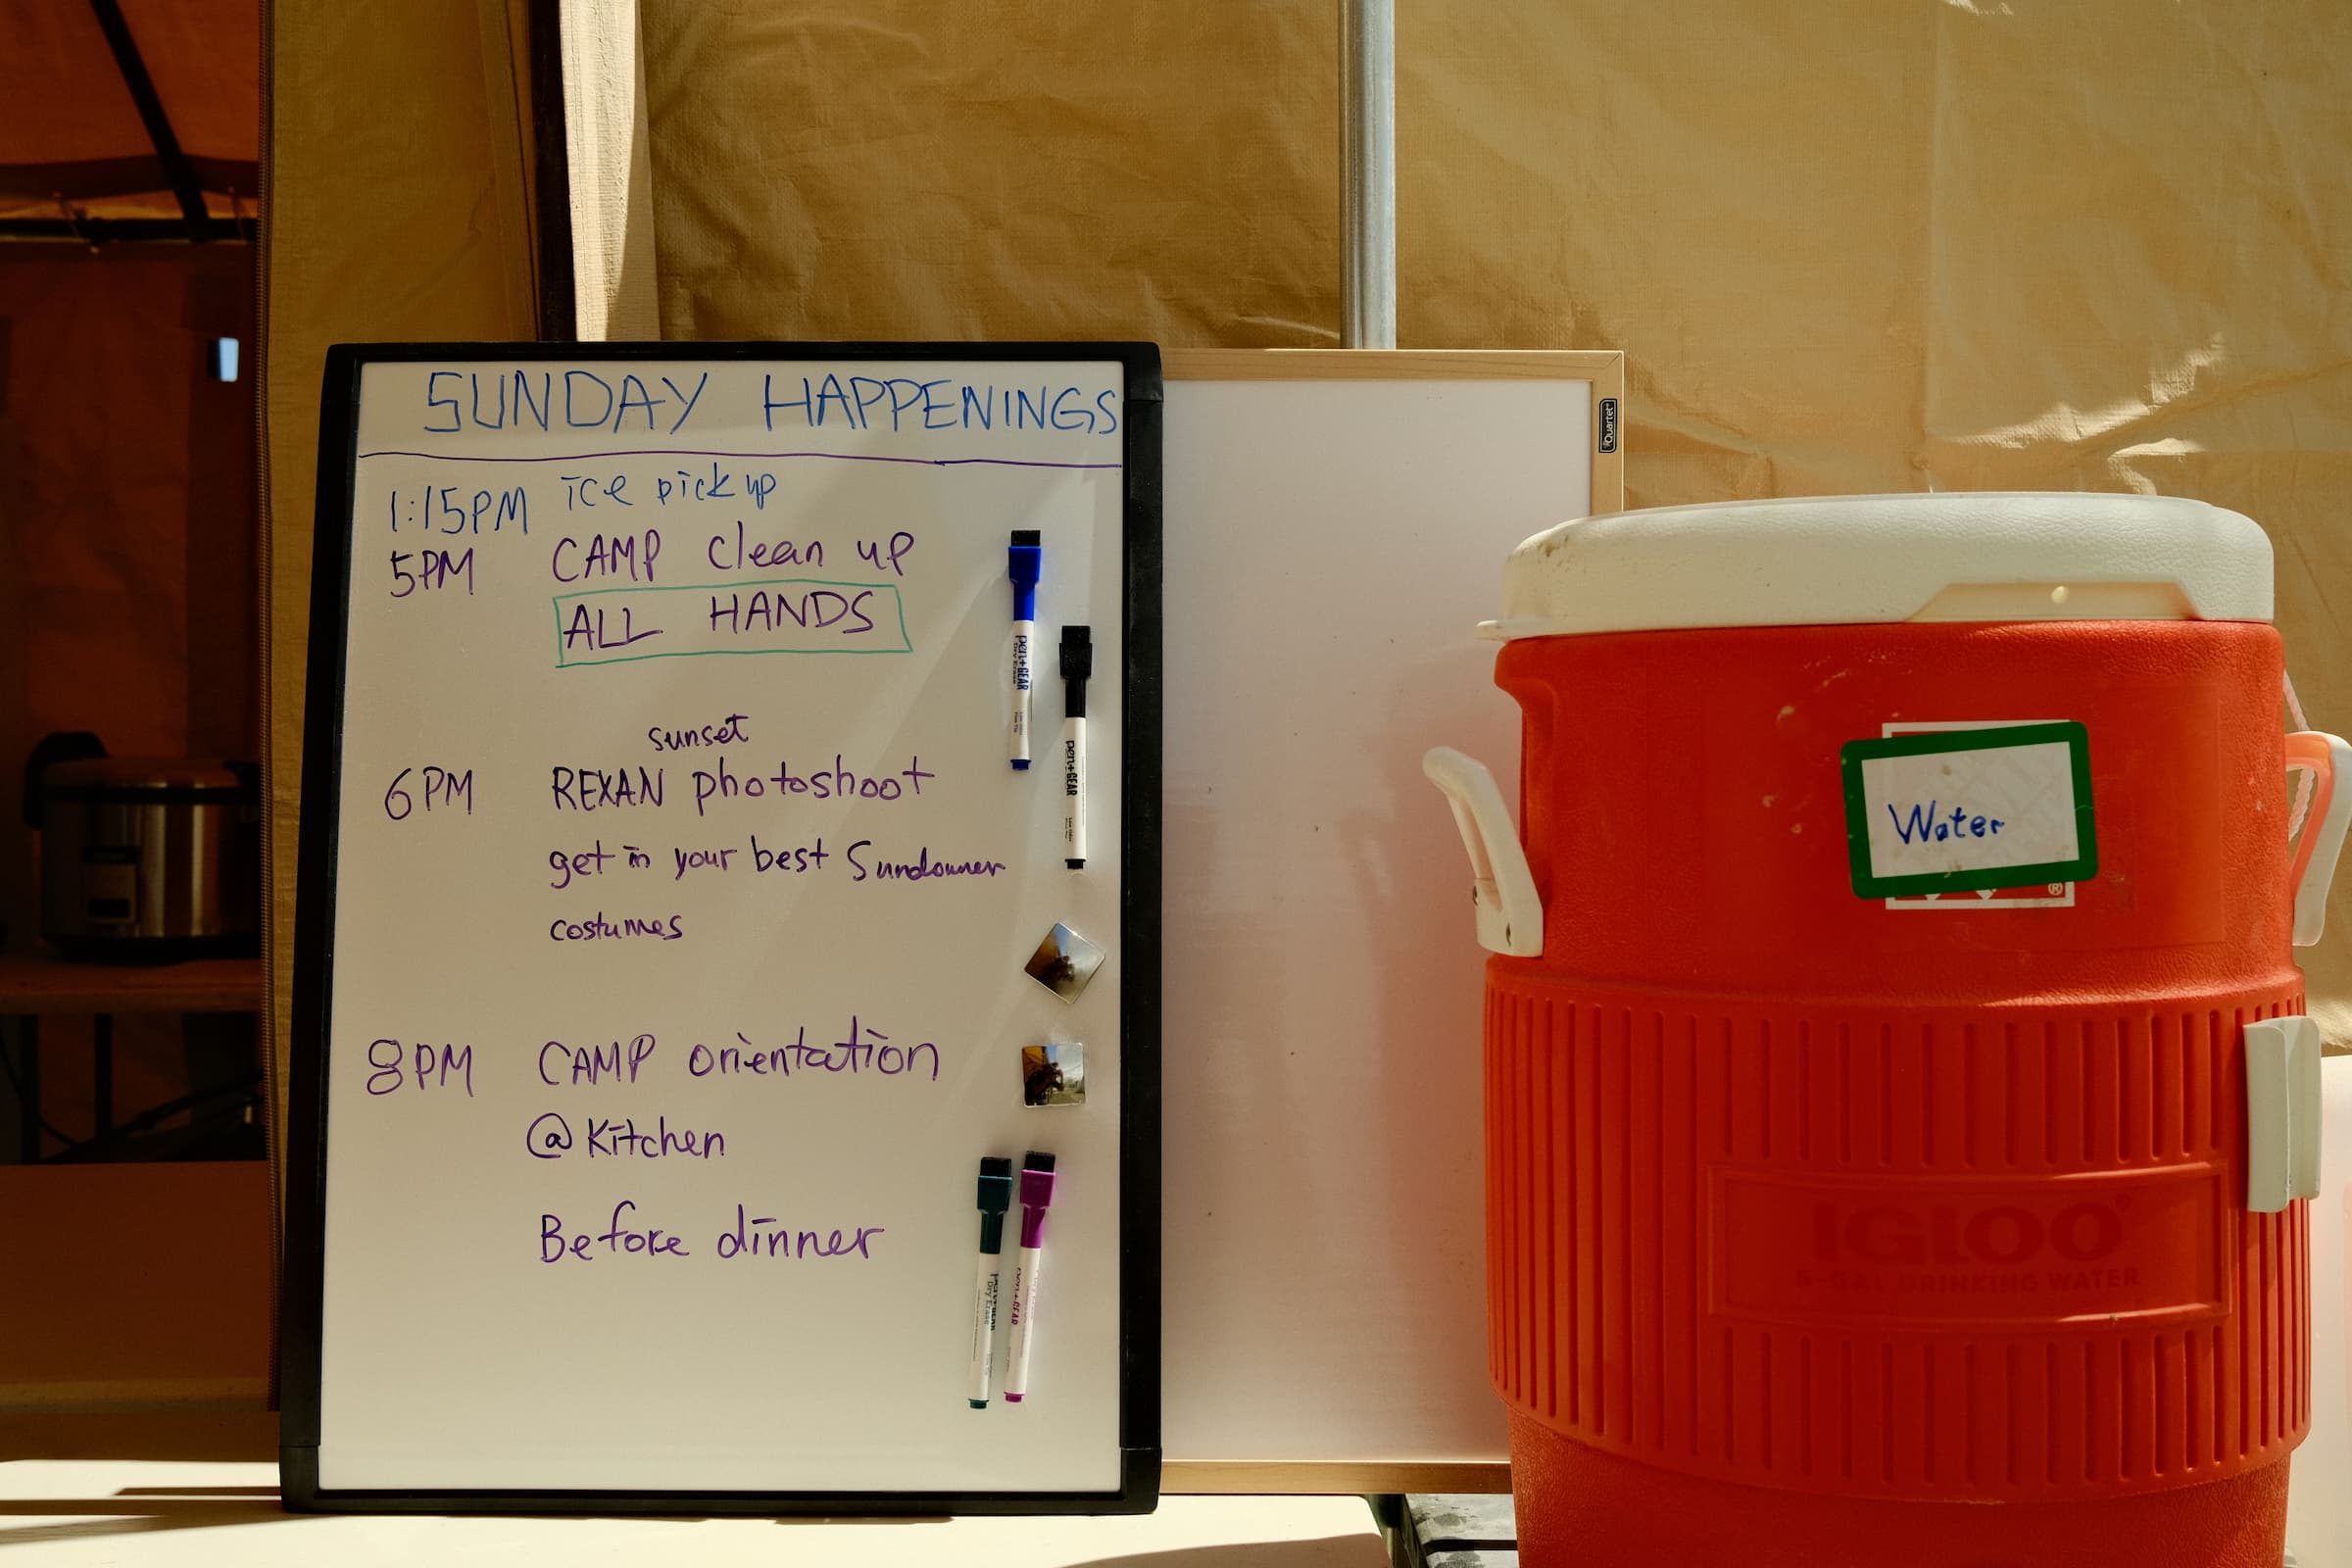 SUNDAY HAPPENINGS
1:15PM ice pick up
5PM CAMP clean up
ALL HANDS
sunset
6PM REXAN photoshoot
get in your best Sundowner
costumes
8PM CAMP orientation
@ Kitchen
Before dinner
pen+GEAR
Dry Erase
pen+GEAR
pen+GEAR
Dry Erase
pen+GEAR
Quartet
Water
®
IGLOO
DRINKING WATER